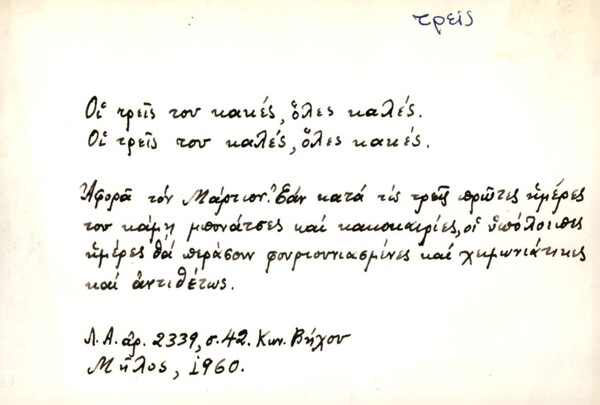 τρεῖς
Οἱ τρεῖς του κακές, ὅλες καλές.
Οἱ τρεῖς του καλές, ὅλες κακές.
Ἀφορᾶ τόν Μάρτιον. Ἐάν κατά τίς τρεῖς πρῶτες ἡμέρες
του κάμῃ μπονάτσες καί κακοκαιρίες, οἱ ὑπόλοιπες
ἡμέρες θά περάσουν φουρτουνιασμένες καί χειμωνιάτικες
καί ἀντιθέτως.
Λ.Α. ἀρ. 2339, σ. 42. Κων. Βήχου
Μῆλος, 1960.